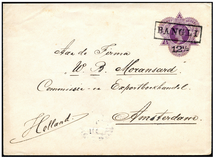 BANGLI
12½
Aan de Firma
W. B. Moransard
Commissie- en Exporthandel
Amsterdam
Holland